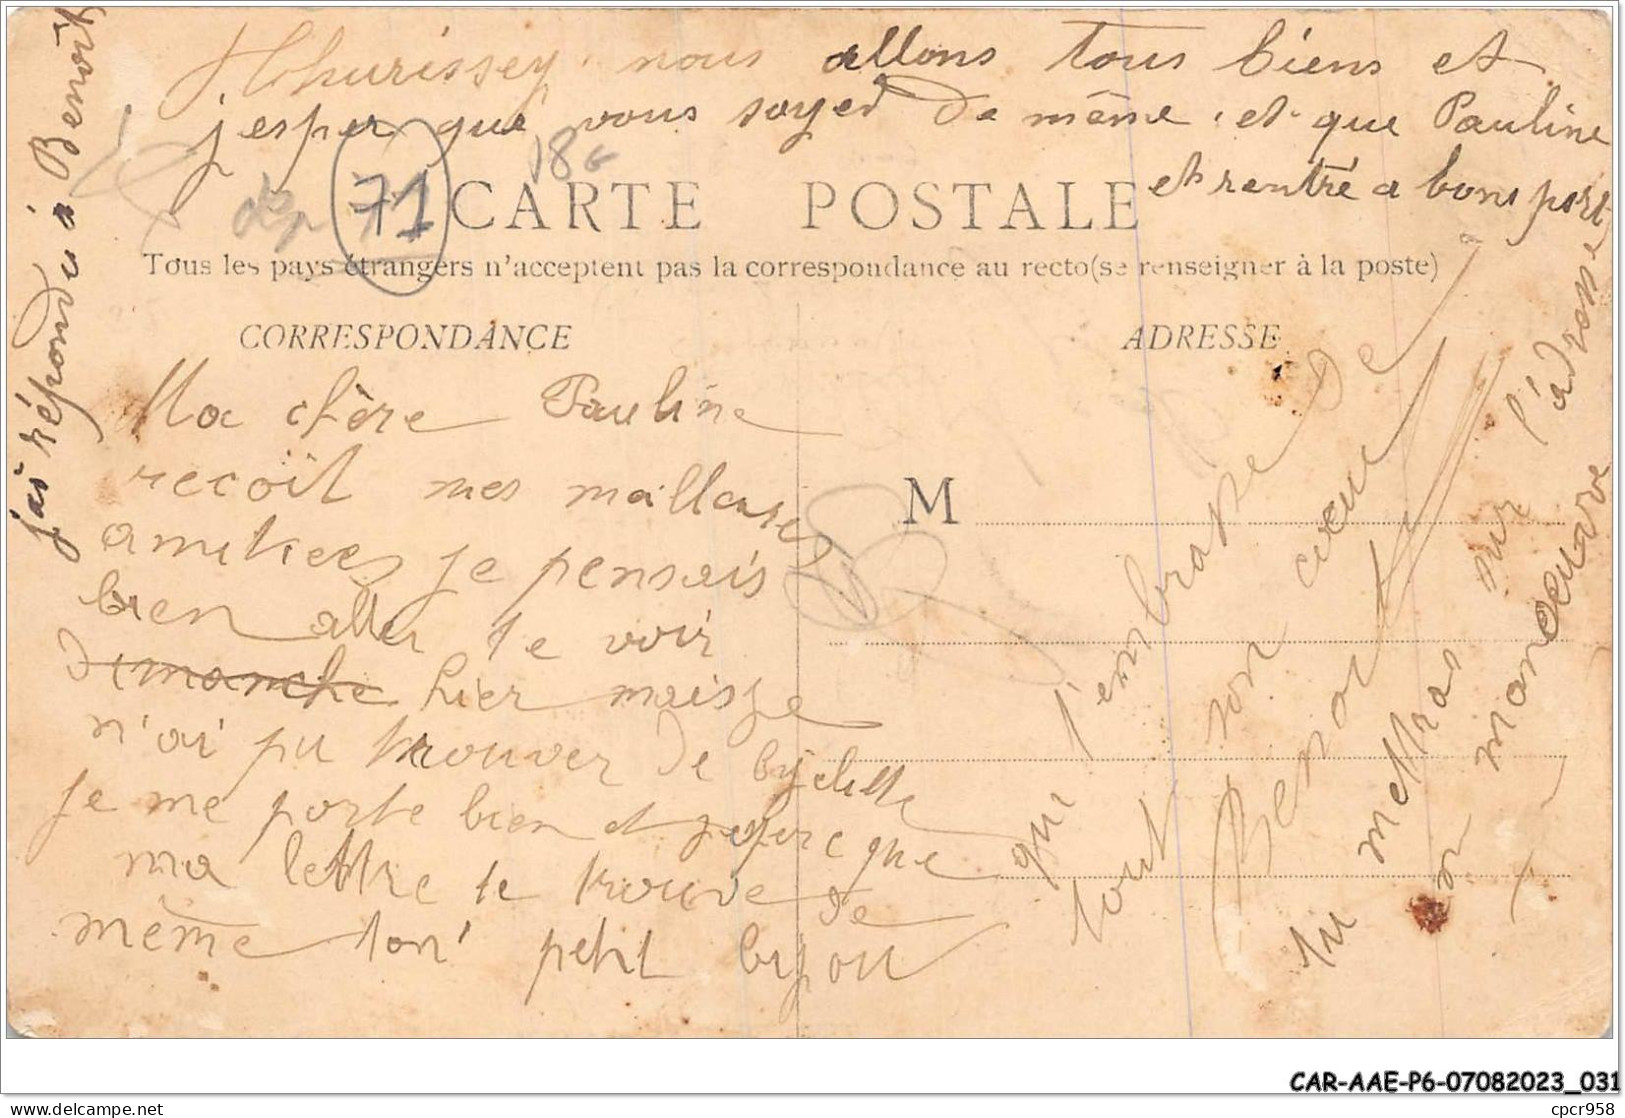 Thurissey. nous allons tous biens et
j'esper que vous soyed de même, et que Pauline
et rentré a bons port
j'ai répondu à Benoît
18 €
dep 71
CARTE POSTALE
Tous les pays étrangers n'acceptent pas la correspondance au recto (se renseigner à la poste)
CORRESPONDANCE
ADRESSE
M
Ma chère Pauline
recoit mes meilleures
amitiees je pensais
bien aller te voir
dimanche hier mais je
n'ai pu trouver de byclette
je me porte bien et j'espère que
ma lettre te trouve de
même ton petit bijou
qui t'embrasse de
tout son cœur
Benoit
tu mettras sur l'adresse
en manoeuvre
CAR-AAE-P6-07082023_031
delcampe.net
cpcr958